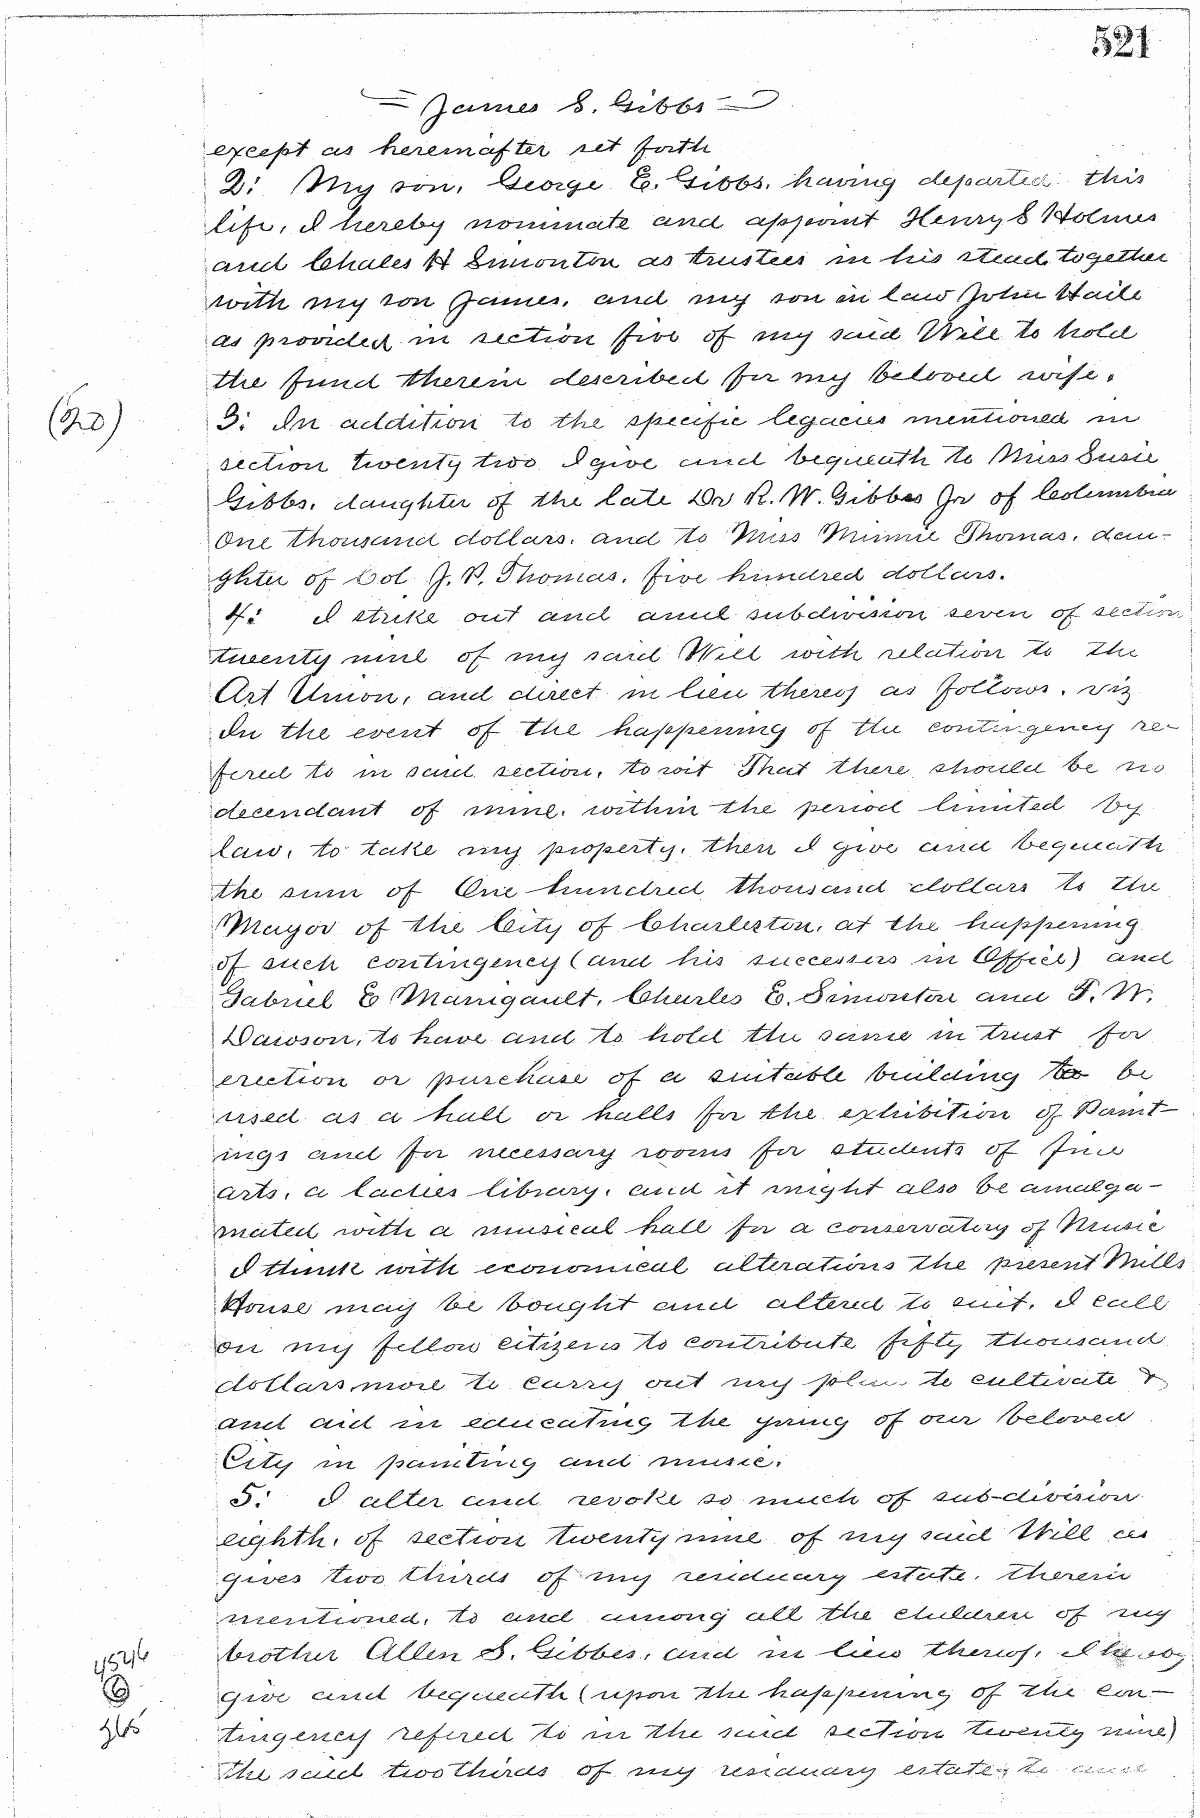 521
James S. Gibbs
except as hereinafter set forth
2: My son, George E. Gibbs, having departed this
life, I hereby nominate and appoint Henry S Holmes
and Chales H Simonton as trustees in his stead, together
with my son James, and my son in law John Haile
as provided in section five of my said Will to hold
the fund therein described for my beloved wife.
3: In addition to the specific legacies mentioned in
section twenty two I give and bequeath to Miss Susie
Gibbs, daughter of the late Dr R. W. Gibbes Jr of Columbia
One thousand dollars, and to Miss Minnie Thomas, dau-
ghter of Col J. P. Thomas, five hundred dollars.
4: I strike out and anul subdivision seven of section
twenty nine of my said Will with relation to the
Art Union, and direct in lieu thereof as follows, viz
In the event of the happening of the contingency re-
fered to in said section, to wit That there should be no
decendant of mine, within the period limited by
law, to take my property, then I give and bequeath
the sum of One hundred thousand dollars to the
Mayor of the City of Charleston, at the happening
of such contingency (and his successors in Office) and
Gabriel E Manigault, Charles E. Simonton and F. W.
Dawson, to have and to hold the same in trust for
erection or purchase of a suitable building to be
used as a hall or halls for the exhibition of Paint-
ings and for necessary rooms for students of fine
arts, a ladies library, and it might also be amalga-
mated with a musical hall for a conservatory of Music
I think with economical alterations the present Mills
House may be bought and altered to suit. I call
on my fellow citizens to contribute fifty thousand
dollars more to carry out my plan to cultivate &
and aid in educating the young of our beloved
City in painting and music.
5: I alter and revoke so much of sub-division
eighth, of section twenty nine of my said Will as
gives two thirds of my residuary estate, therein
mentioned, to and among all the children of my
brother Allen S. Gibbes, and in lieu thereof, I hereby
give and bequeath (upon the happening of the con-
tingency refered to in the said section twenty nine)
the said two thirds of my residuary estate, to and
4546
6
365